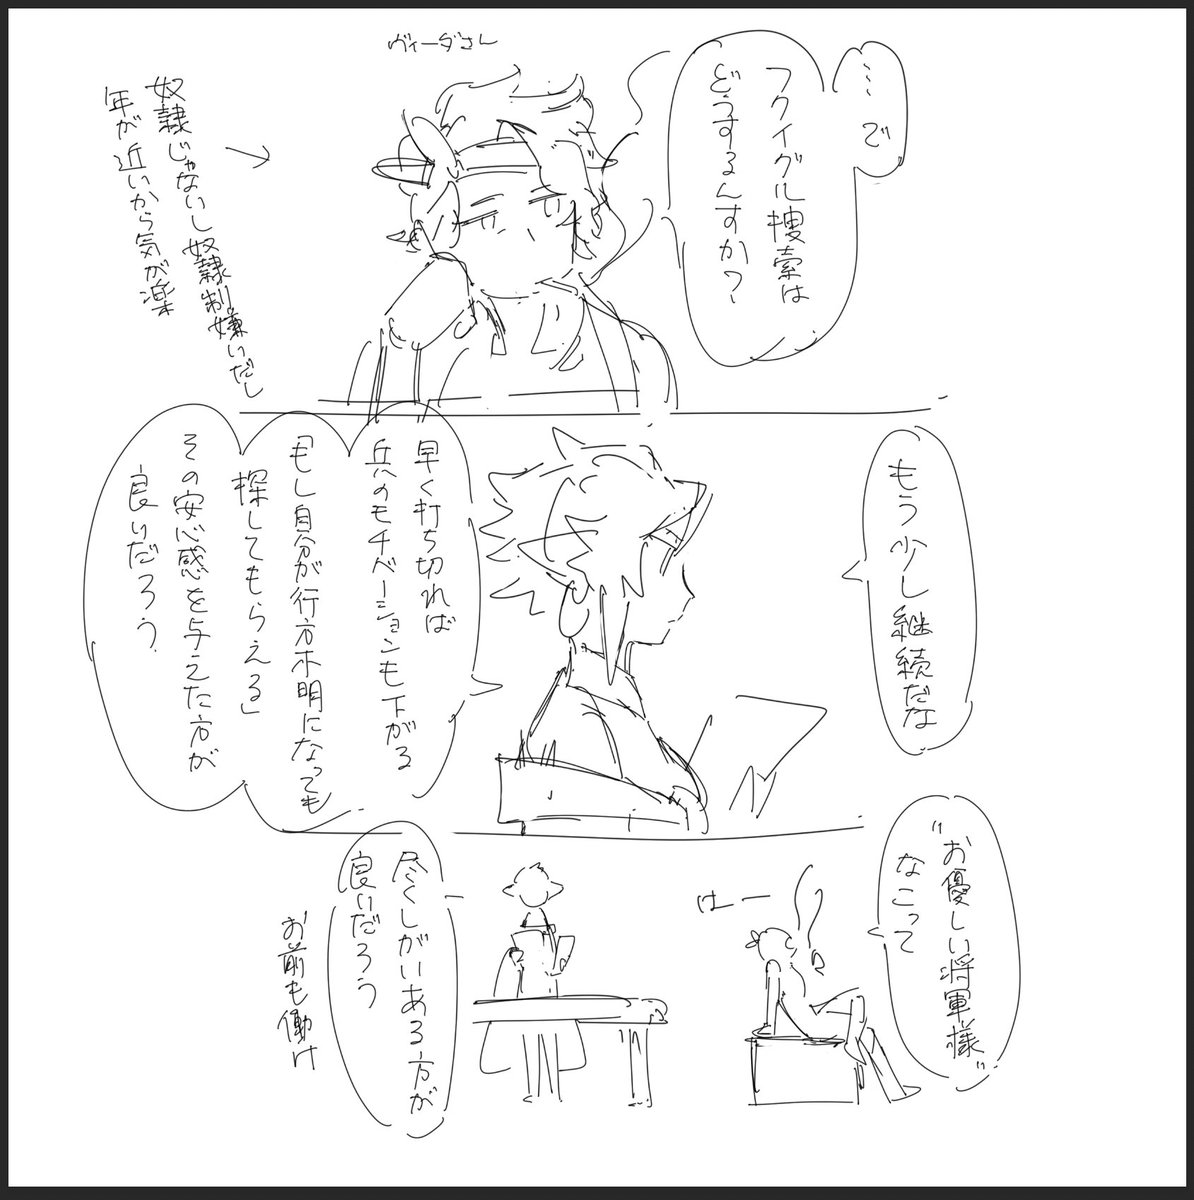 …で
フクイグル捜索は
どうするんすか？
ヴィーダさん
奴隷じゃないし奴隷制嫌いだし
年が近いから気が楽
もう少し継続だな
早く打ち切れば
兵のモチベーションも下がる
「もし自分が行方不明になっても
探してもらえる」
その安心感を与えた方が
良いだろう
"お優しい将軍様"
なこって
はー
尽くしがいある方が
良いだろう
お前も働け